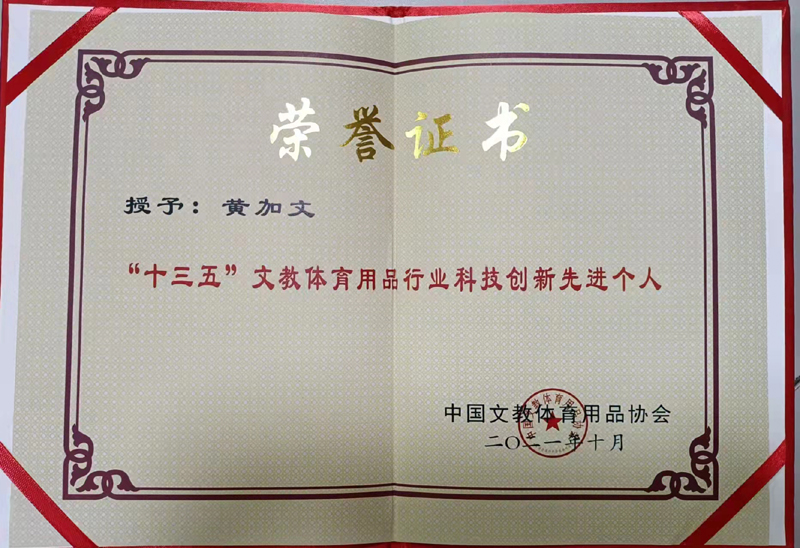 荣誉证书
授予：黄加文
“十三五”文教体育用品行业科技创新先进个人
中国文教体育用品协会
二〇二一年十月
中国文教体育用品协会